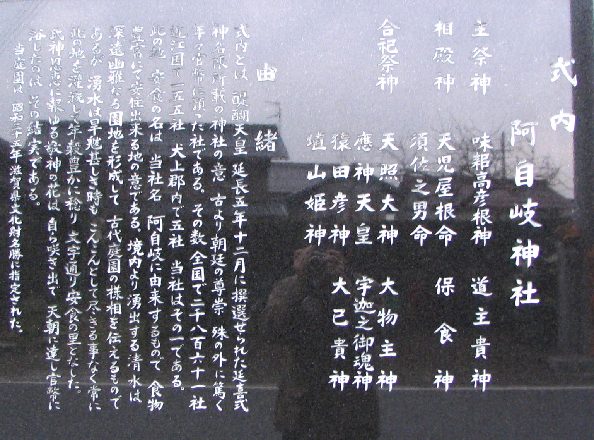 式内
阿自岐神社
主祭神 味耜高彦根神 道主貴神
相殿神 天児屋根命 保食神
須佐之男命
合祀祭神 天照大神 大物主神
應神天皇 宇迦之御魂神
猿田彦神 大己貴神
埴山姫神
由緒
式内とは 醍醐天皇 延長五年十二月に撰選せられた延喜式
神名帳所載の神社の意 古より朝廷の尊崇 殊の外に篤く
年々官幣に預った社である。その数 全国で二千八百六十一社
近江国で一五五社 犬上郡内で五社 当社はその一である。
此の地 安食の名は 当社名 阿自岐に由来するもので 食物
豊富にして安住出来る地の意である。境内より湧出する清水は
深遠幽雅なる園地を形成して 古代庭園の様相を伝えるもので
あるが 湧水は旱魃甚しき時も こんこんとして尽きる事なく常に
此の地を灌漑して年穀豊かに稔り 文字通り安食の里となした。
氏神の恵に報ゆる敬神の花は 自ら咲き出で 天朝に達し官幣に
浴したのは その結実である。
当庭園は 昭和二十五年 滋賀県文化財名勝に指定された。